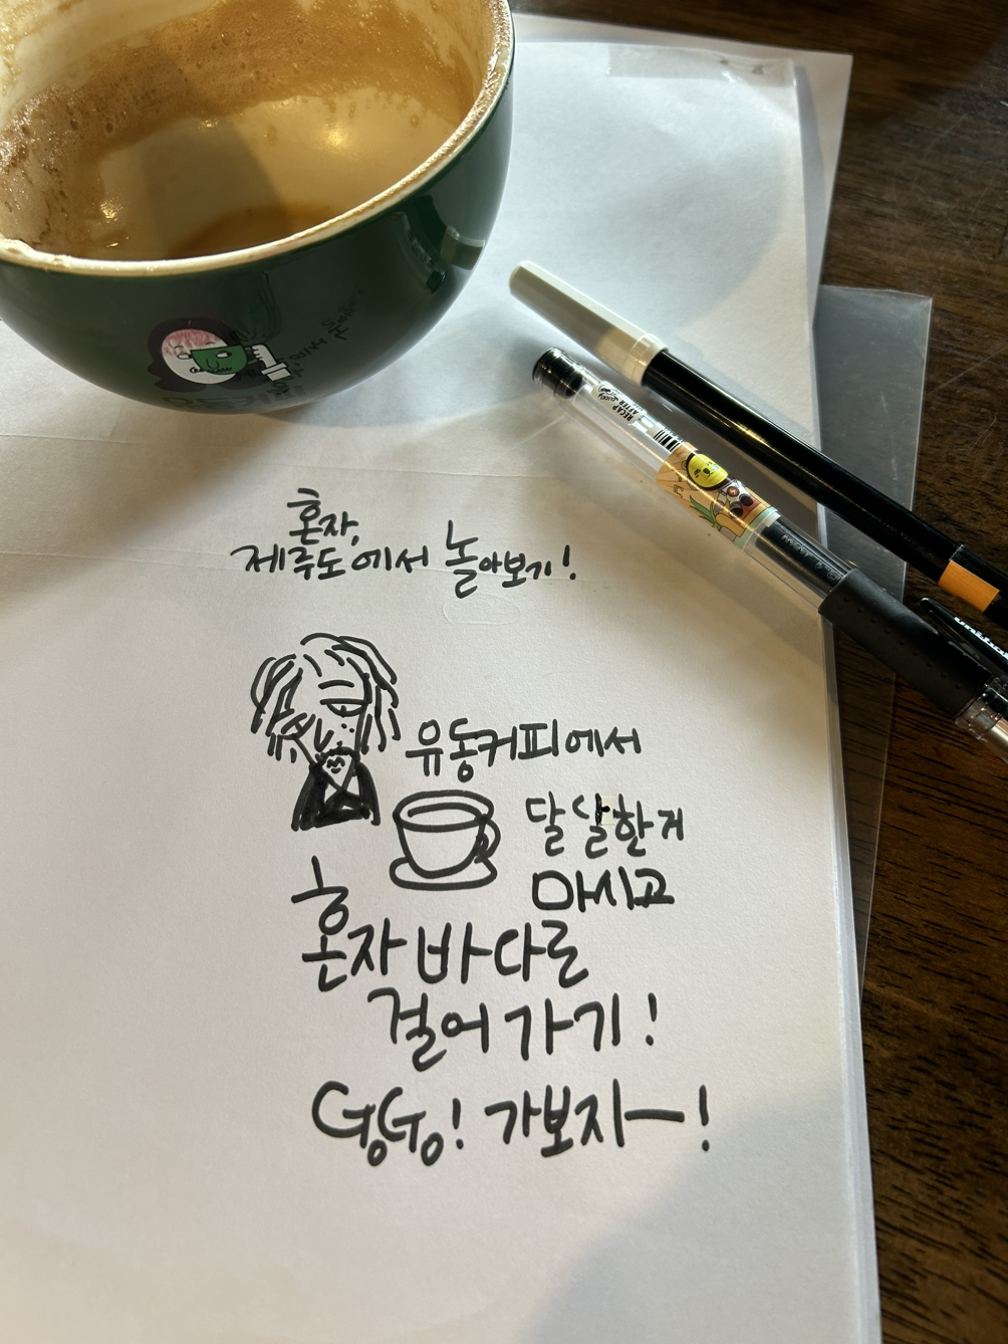 혼자,
제주도에서 놀아보기!
유동커피에서
달달한거
마시고
혼자 바다로
걸어가기!
GoGo! 가보자ㅡ!
RECAP